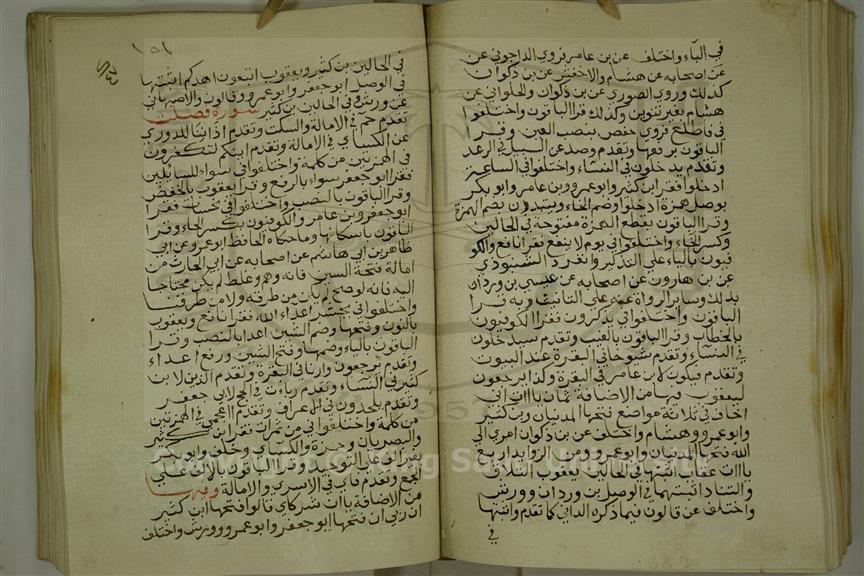 في الباء واختلف عن بن عامر فروي الداجوني عن
عن اصحابه عن هشام والاخفش عن بن ذكوان
كذلك وروي الصوري عن بن ذكوان والحلواني عن
هشام بغير تنوين وكذلك قرا الباقون واختلفوا
في فاطلع فروي حفص بنصب العين وقرا
الباقون برفعها وتقدم وصد عن السبيل في الرعد
وتقدم يدخلون في النساء واختلفوا في الساعة
ادخلوا فقرا ابن كثير وابو عمرو وبن عامر وابو بكر
بوصل همزة ادخلوا وضم الخاء ويبتدون بضم الهمزة
وقرا الباقون بقطع الهمزة مفتوحة في الحالين
وكسر الخاء واختلفوا في يوم لا ينفع فقرا نافع والكو
فيون بالياء على التذكير وانفرد الشنبوذي
عن بن هارون عن اصحابه عن عيسي بن وردان
بذلك وساير الرواة عنه على التانيث وبه قرا
الباقون واختلفوا في يتذكرون فقرا الكوفيون
بالخطاب وقرا الباقون بالغيب وتقدم سيدخلون
في النساء وتقدم شيوخا في البقرة عند البيوت
وتقدم فيكون لابن عامر في البقرة وكذا يرجعون
ليعقوب فيها من الاضافة ثمان ياات اني
اخاف في ثلاثة مواضع فتحها المدنيان وبن كثير
وابو عمرو وهشام واختلف عن بن ذكوان امري الي
الله فتحها المدنيان وابو عمرو ومن الزوايد اربع
ياات عقاب اثبتها في الحالين يعقوب التلاق
والتناد اثبتهما في الوصل بن وردان وورش
واختلف عن قالون فيما ذكره الداني كما تقدم واثبتها
في
١٥١
في الحالين بن كثير ويعقوب اتبعون اهدكم اثبتها
في الوصل ابو جعفر وابو عمرو وقالون والاصبهاني
عن ورش وفي الحالين بن كثير سورة فصلت
تقدم حم في الامالة والسكت وتقدم اذاننا للدوري
عن الكساي في الامالة وتقدم اينكم لتكفرون
في الهمزتين من كلمة واختلفوا في سواء للسائلين
فقرا ابو جعفر سواء بالرفع وقرا يعقوب بالخفض
وقرا الباقون بالنصب واختلفوا في نحسات فقرا
ابو جعفر وبن عامر والكوفيون بكسر الحاء وقرا
الباقون باسكانها وما حكاه الحافظ ابو عمرو عن ابي
طاهر بن ابي هاشم عن اصحابه عن ابي الحارث من
امالة فتحة السين فانه وهم وغلط لم يكن محتاجا
اليه فانه لو صح لم يكن من طرقه ولا من طرقنا
واختلفوا في يحشر اعداء الله فقرا نافع ويعقوب
بالنون وفتحها وضم الشين اعدا بالنصب وقرا
الباقون بالياء وضمها وفتح الشين ورفع اعداء
وتقدم يرجعون وارنا في البقرة وتقدم الذين لابن
كثير في النساء وتقدم ربات في الحج لابي جعفر
وتقدم يلحدون في الاعراف وتقدم ااعجمي في الهمزتين
من كلمة واختلفوا في من ثمرات فقرا بن كثير
والبصريان وحمزة والكساي وخلف وابو بكر
بغير الف على التوحيد وقرا الباقون بالالف على
الجمع وتقدم ناي في الاسري والامالة وفيها
من الاضافة ياان شركاي قالوا فتحها ابن كثير
ان ربي ان فتحها ابو جعفر وابو عمرو وورش واختلف